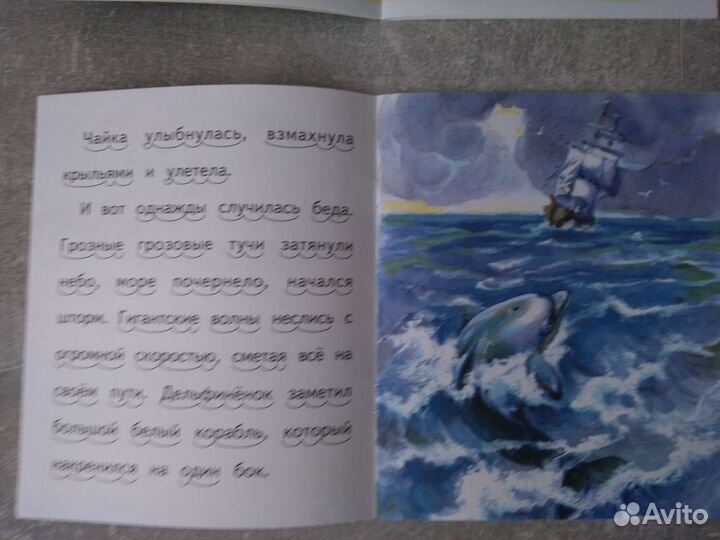 Чайка улыбнулась, взмахнула
крыльями и улетела.
И вот однажды случилась беда.
Грозные грозовые тучи затянули
небо, море почернело, начался
шторм. Гигантские волны неслись с
огромной скоростью, сметая всё на
своём пути. Дельфинёнок заметил
большой белый корабль, который
накренился на один бок.
Avito